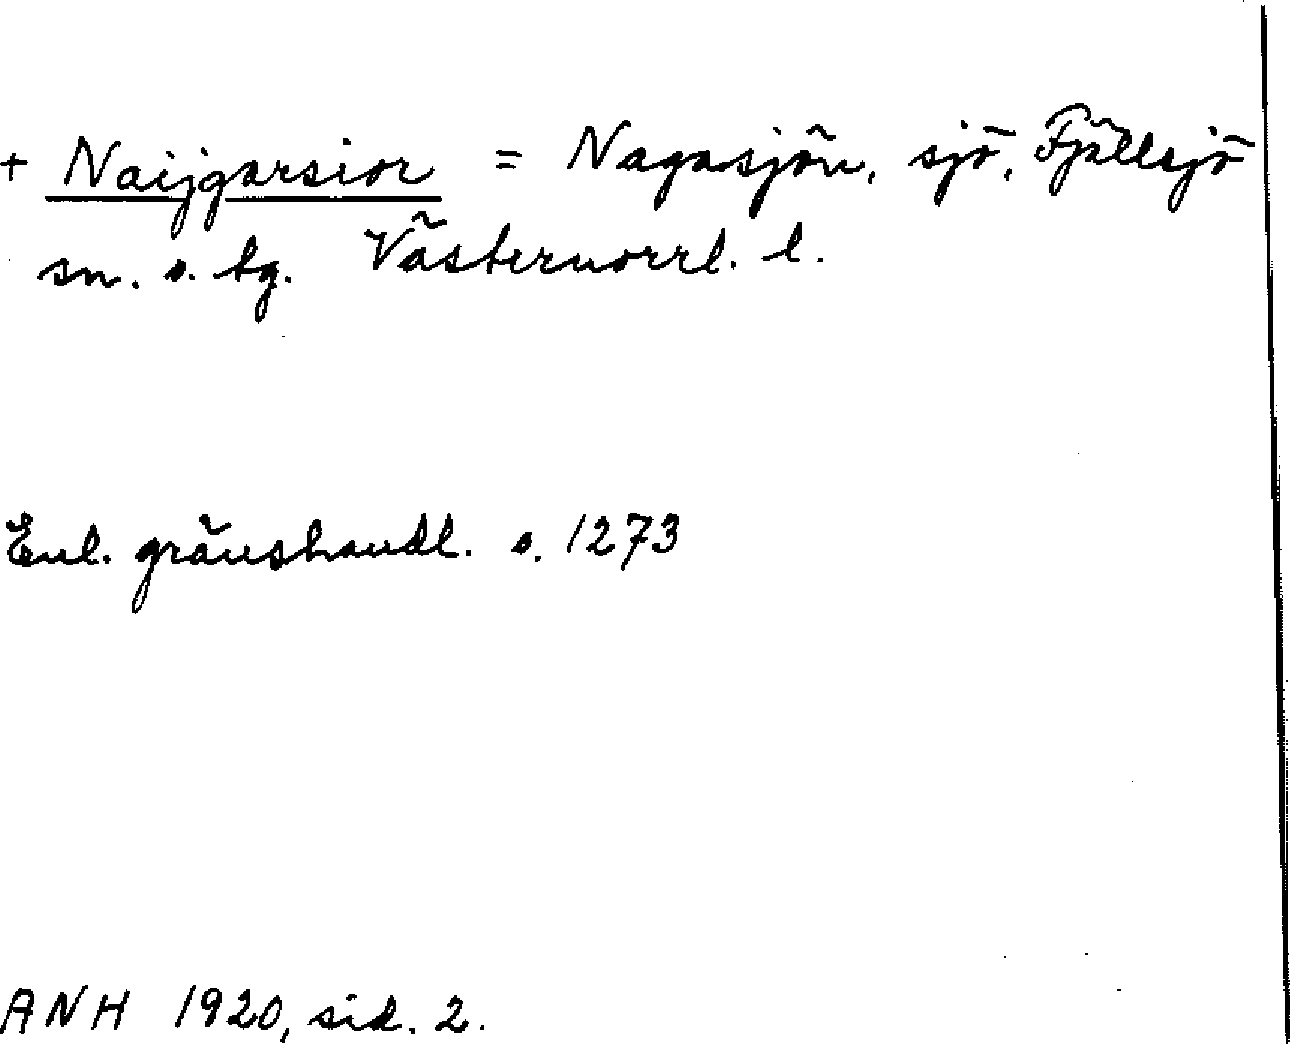 + Naijgarsior = Nagasjön, sjö, Fjällsjö
sn. o. tg. Västernorrl. l.
Enl. gränshandl. o. 1273
ANH 1920, sid. 2.